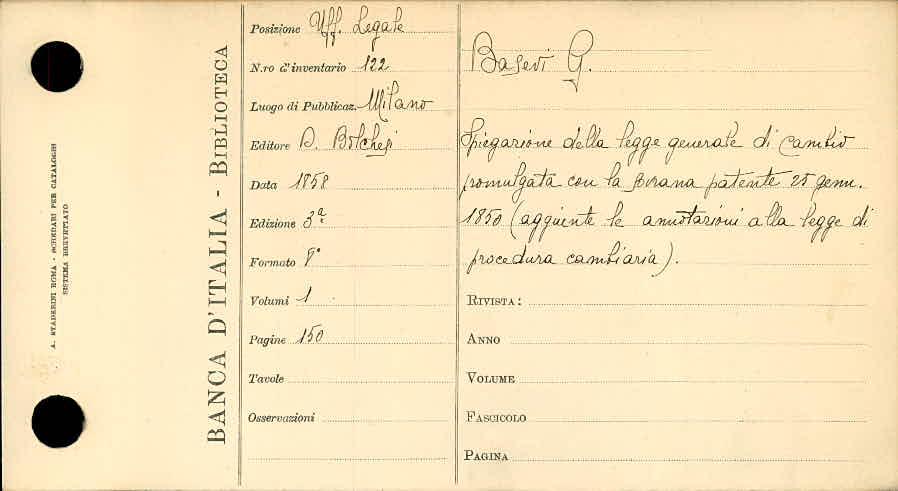 A. STADERINI ROMA - SCHEDARI PER CATALOGHI
SISTEMA BREVETTATO
BANCA D'ITALIA - BIBLIOTECA
Posizione Uff. Legale
N.ro d'inventario 122
Luogo di Pubblicaz. Milano
Editore D.
Data 1858
Edizione 3ª
Formato 8°
Volumi 1
Pagine 150
Tavole
Osservazioni
Basevi G.
Spiegazione della legge generale di cambio
promulgata con la sovrana patente 25 genn.
1850 (aggiunte le annotazioni alla legge di
procedura cambiaria).
RIVISTA:
ANNO
VOLUME
FASCICOLO
PAGINA